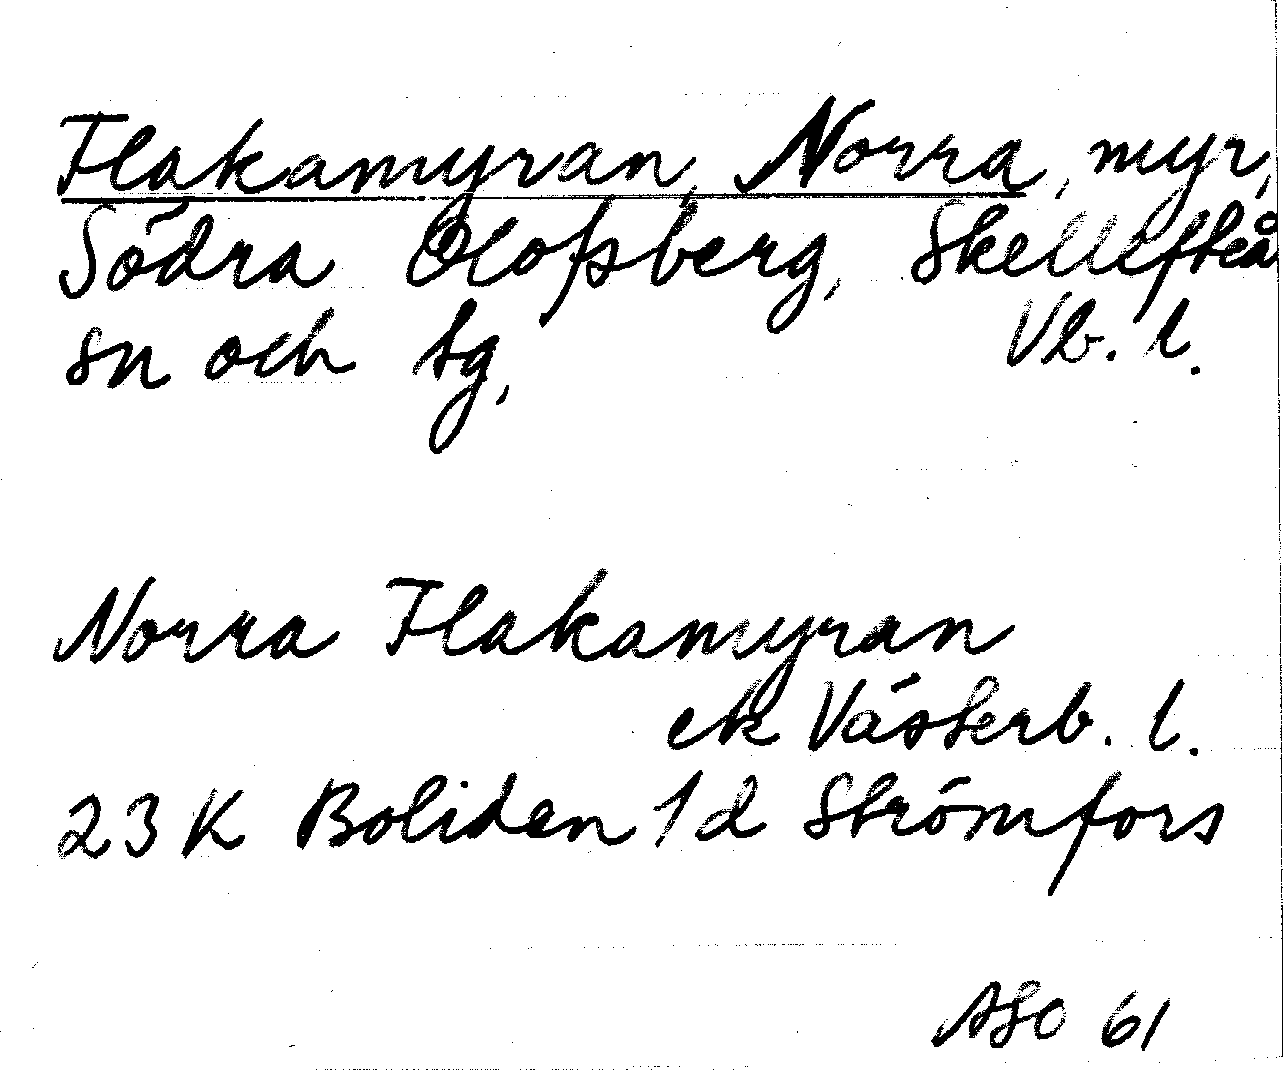 Flakamyran, Norra, myr,
Södra Olofsberg, Skellefteå
sn och tg,
Vb. l.
Norra Flakamyran
ek Västerb. l.
23 K Boliden 1 d Strömfors
ASO 61